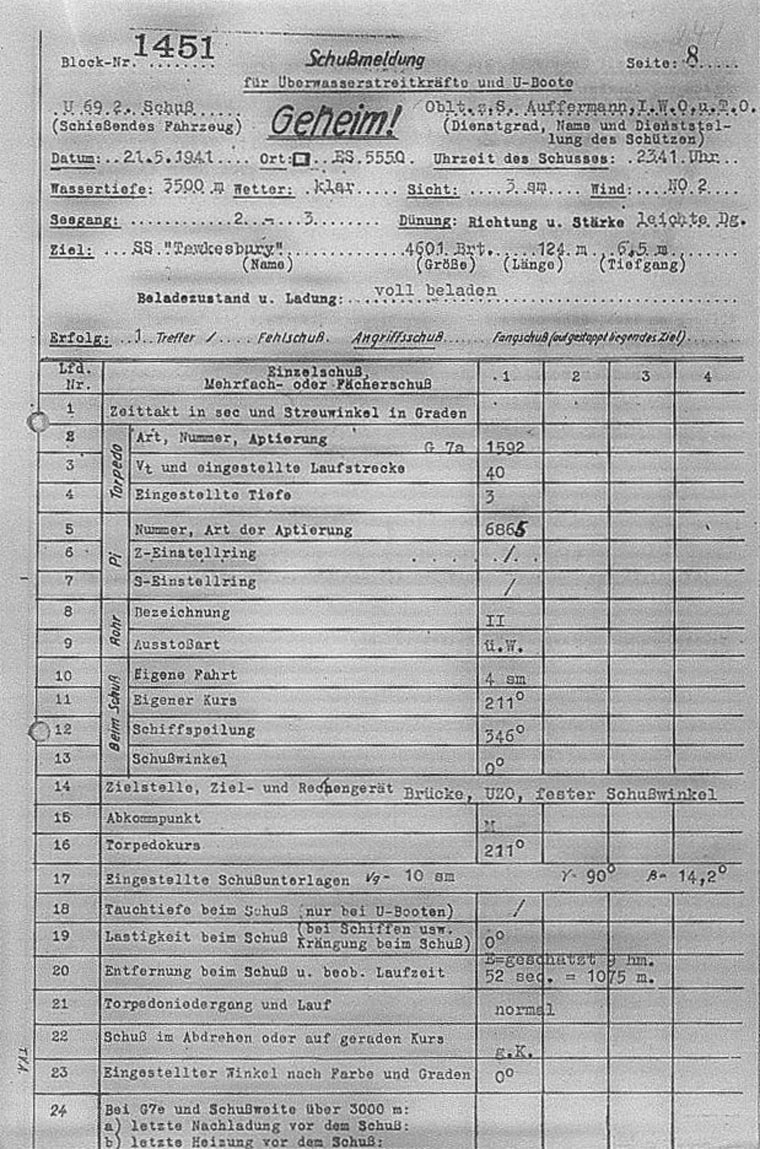 Block-Nr. 1451 Schußmeldung Seite: 8
für Überwasserstreitkräfte und U-Boote
U 69 2. Schuß Geheim! Oblt.z.S. Auffermann, I.W.O.u.T.O.
(Schießendes Fahrzeug) (Dienstgrad, Name und Dienststel-
lung des Schützen)
Datum: 21.5.1941 Ort: ES. 5550. Uhrzeit des Schusses: 2341 Uhr
Wassertiefe: 3500 m Wetter: klar Sicht: 3 sm Wind: NO 2
Seegang: 2 - 3 Dünung: Richtung u. Stärke leichte Dg.
Ziel: SS "Tewkesbury" 4601 Brt. 124 m 6,5 m
(Name) (Größe) (Länge) (Tiefgang)
Beladezustand u. Ladung: voll beladen
Erfolg: 1 Treffer / Fehlschuß. Angriffsschuß Fangschuß (auf gestoppt liegendes Ziel)
Lfd. Nr. Einzelschuß, Mehrfach- oder Fächerschuß 1 2 3 4
1 Zeittakt in sec und Streuwinkel in Graden
Torpedo
2 Art, Nummer, Aptierung G 7a 1592
3 Vt und eingestellte Laufstrecke 40
4 Eingestellte Tiefe 3
Pi
5 Nummer, Art der Aptierung 6865
6 Z-Einstellring /
7 S-Einstellring /
Rohr
8 Bezeichnung II
9 Ausstoßart ü.W.
Beim Schuß
10 Eigene Fahrt 4 sm
11 Eigener Kurs 211°
12 Schiffspeilung 346°
13 Schußwinkel 0°
14 Zielstelle, Ziel- und Rechengerät Brücke, UZO, fester Schußwinkel
15 Abkommpunkt M
16 Torpedokurs 211°
17 Eingestellte Schußunterlagen Vg- 10 sm γ- 90° β- 14,2°
18 Tauchtiefe beim Schuß (nur bei U-Booten) /
19 Lastigkeit beim Schuß (bei Schiffen usw. Krängung beim Schuß) 0°
20 Entfernung beim Schuß u. beob. Laufzeit E=geschätzt 9 hm.
52 sec. = 1075 m.
21 Torpedoniedergang und Lauf normal
22 Schuß im Abdrehen oder auf geraden Kurs g.K.
23 Eingestellter Winkel nach Farbe und Graden 0°
24 Bei G7e und Schußweite über 3000 m:
a) letzte Nachladung vor dem Schuß:
b) letzte Heizung vor dem Schuß: